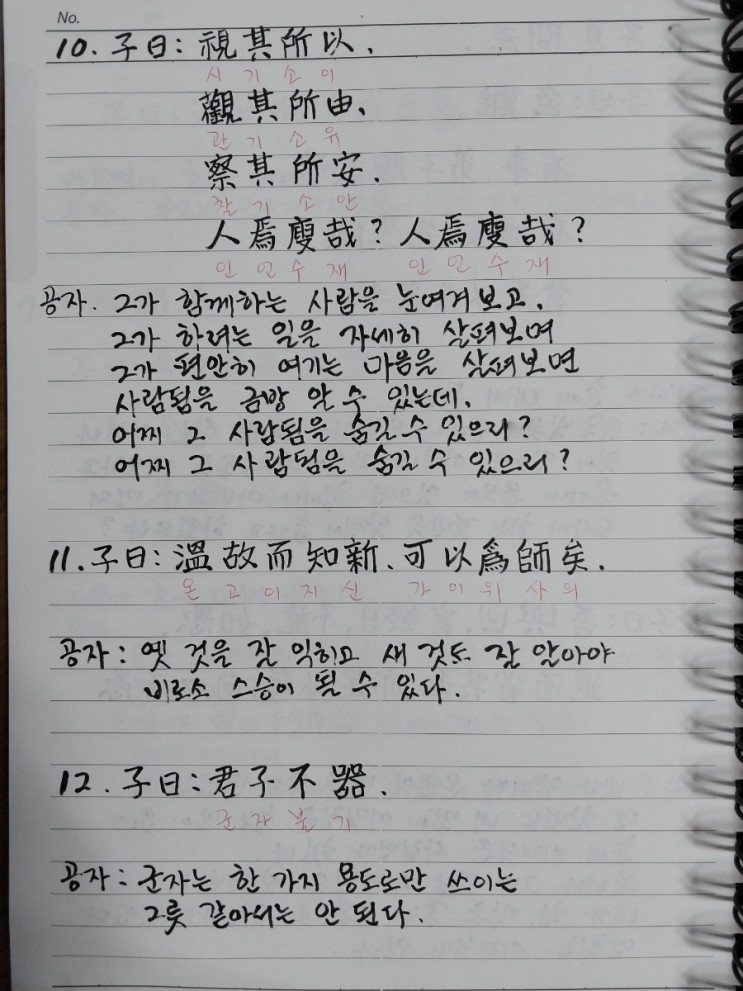 No.
10. 子曰: 視其所以.
시 기 소 이
觀其所由.
관 기 소 유
察其所安.
찰 기 소 안
人焉廋哉? 人焉廋哉?
인 언 수 재 인 언 수 재
공자. 그가 함께하는 사람을 눈여겨보고,
그가 하려는 일을 자세히 살펴보며
그가 편안히 여기는 마음을 살펴보면
사람됨을 금방 알 수 있는데,
어찌 그 사람됨을 숨길 수 있으리?
어찌 그 사람됨을 숨길 수 있으리?
11. 子曰: 溫故而知新, 可以爲師矣.
온 고 이 지 신 가 이 위 사 의
공자: 옛 것을 잘 익히고 새 것도 잘 알아야
비로소 스승이 될 수 있다.
12. 子曰: 君子不器.
군 자 불 기
공자: 군자는 한 가지 용도로만 쓰이는
그릇 같아서는 안 된다.